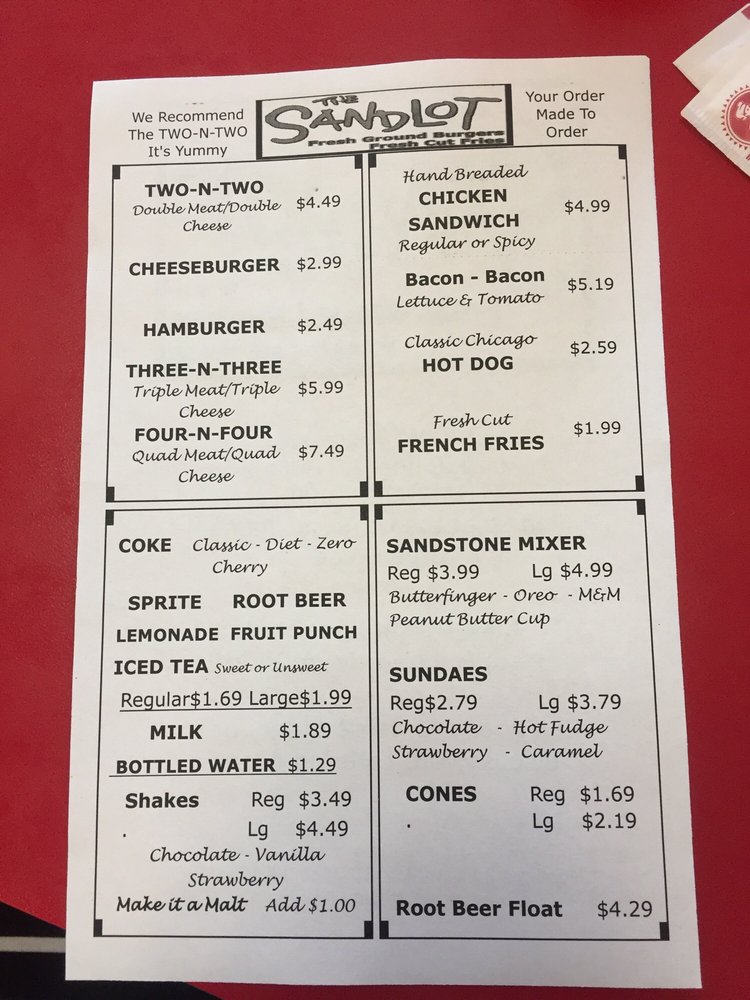 We Recommend
The TWO-N-TWO
It's Yummy
THE
SANDLOT
Fresh Ground Burgers
Fresh Cut Fries
Your Order
Made To
Order
TWO-N-TWO
Double Meat/Double
Cheese
$4.49
CHEESEBURGER $2.99
HAMBURGER $2.49
THREE-N-THREE
Triple Meat/Triple
Cheese
$5.99
FOUR-N-FOUR
Quad Meat/Quad
Cheese
$7.49
Hand Breaded
CHICKEN
SANDWICH
Regular or Spicy
$4.99
Bacon - Bacon
Lettuce & Tomato
$5.19
Classic Chicago
HOT DOG
$2.59
Fresh Cut
FRENCH FRIES
$1.99
COKE Classic - Diet - Zero
Cherry
SPRITE ROOT BEER
LEMONADE FRUIT PUNCH
ICED TEA Sweet or Unsweet
Regular$1.69 Large$1.99
MILK $1.89
BOTTLED WATER $1.29
Shakes Reg $3.49
. Lg $4.49
Chocolate - Vanilla
Strawberry
Make it a Malt Add $1.00
SANDSTONE MIXER
Reg $3.99 Lg $4.99
Butterfinger - Oreo - M&M
Peanut Butter Cup
SUNDAES
Reg$2.79 Lg $3.79
Chocolate - Hot Fudge
Strawberry - Caramel
CONES Reg $1.69
. Lg $2.19
Root Beer Float $4.29